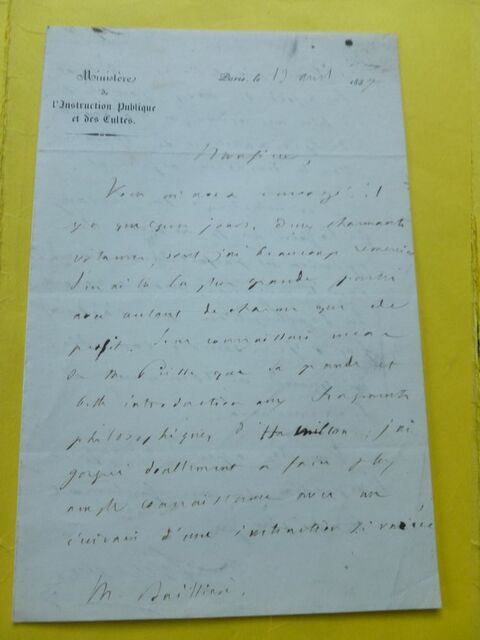 Ministère
de
l'Instruction Publique
et des Cultes.
Paris, le 13 avril 1857
Monsieur,
Vous m'avez envoyé, il
y a quelques jours, deux charmants
volumes, dont j'ai beaucoup
J'en ai lu la plus grande partie
avec autant de charme que de
profit. Je ne connaissais
de M. que sa grande et
belle introduction aux fragments
philosophiques d'Hamilton. j'ai
gagné doublement à faire plus
ample connaissance avec un
écrivain d'une instruction si variée
M.